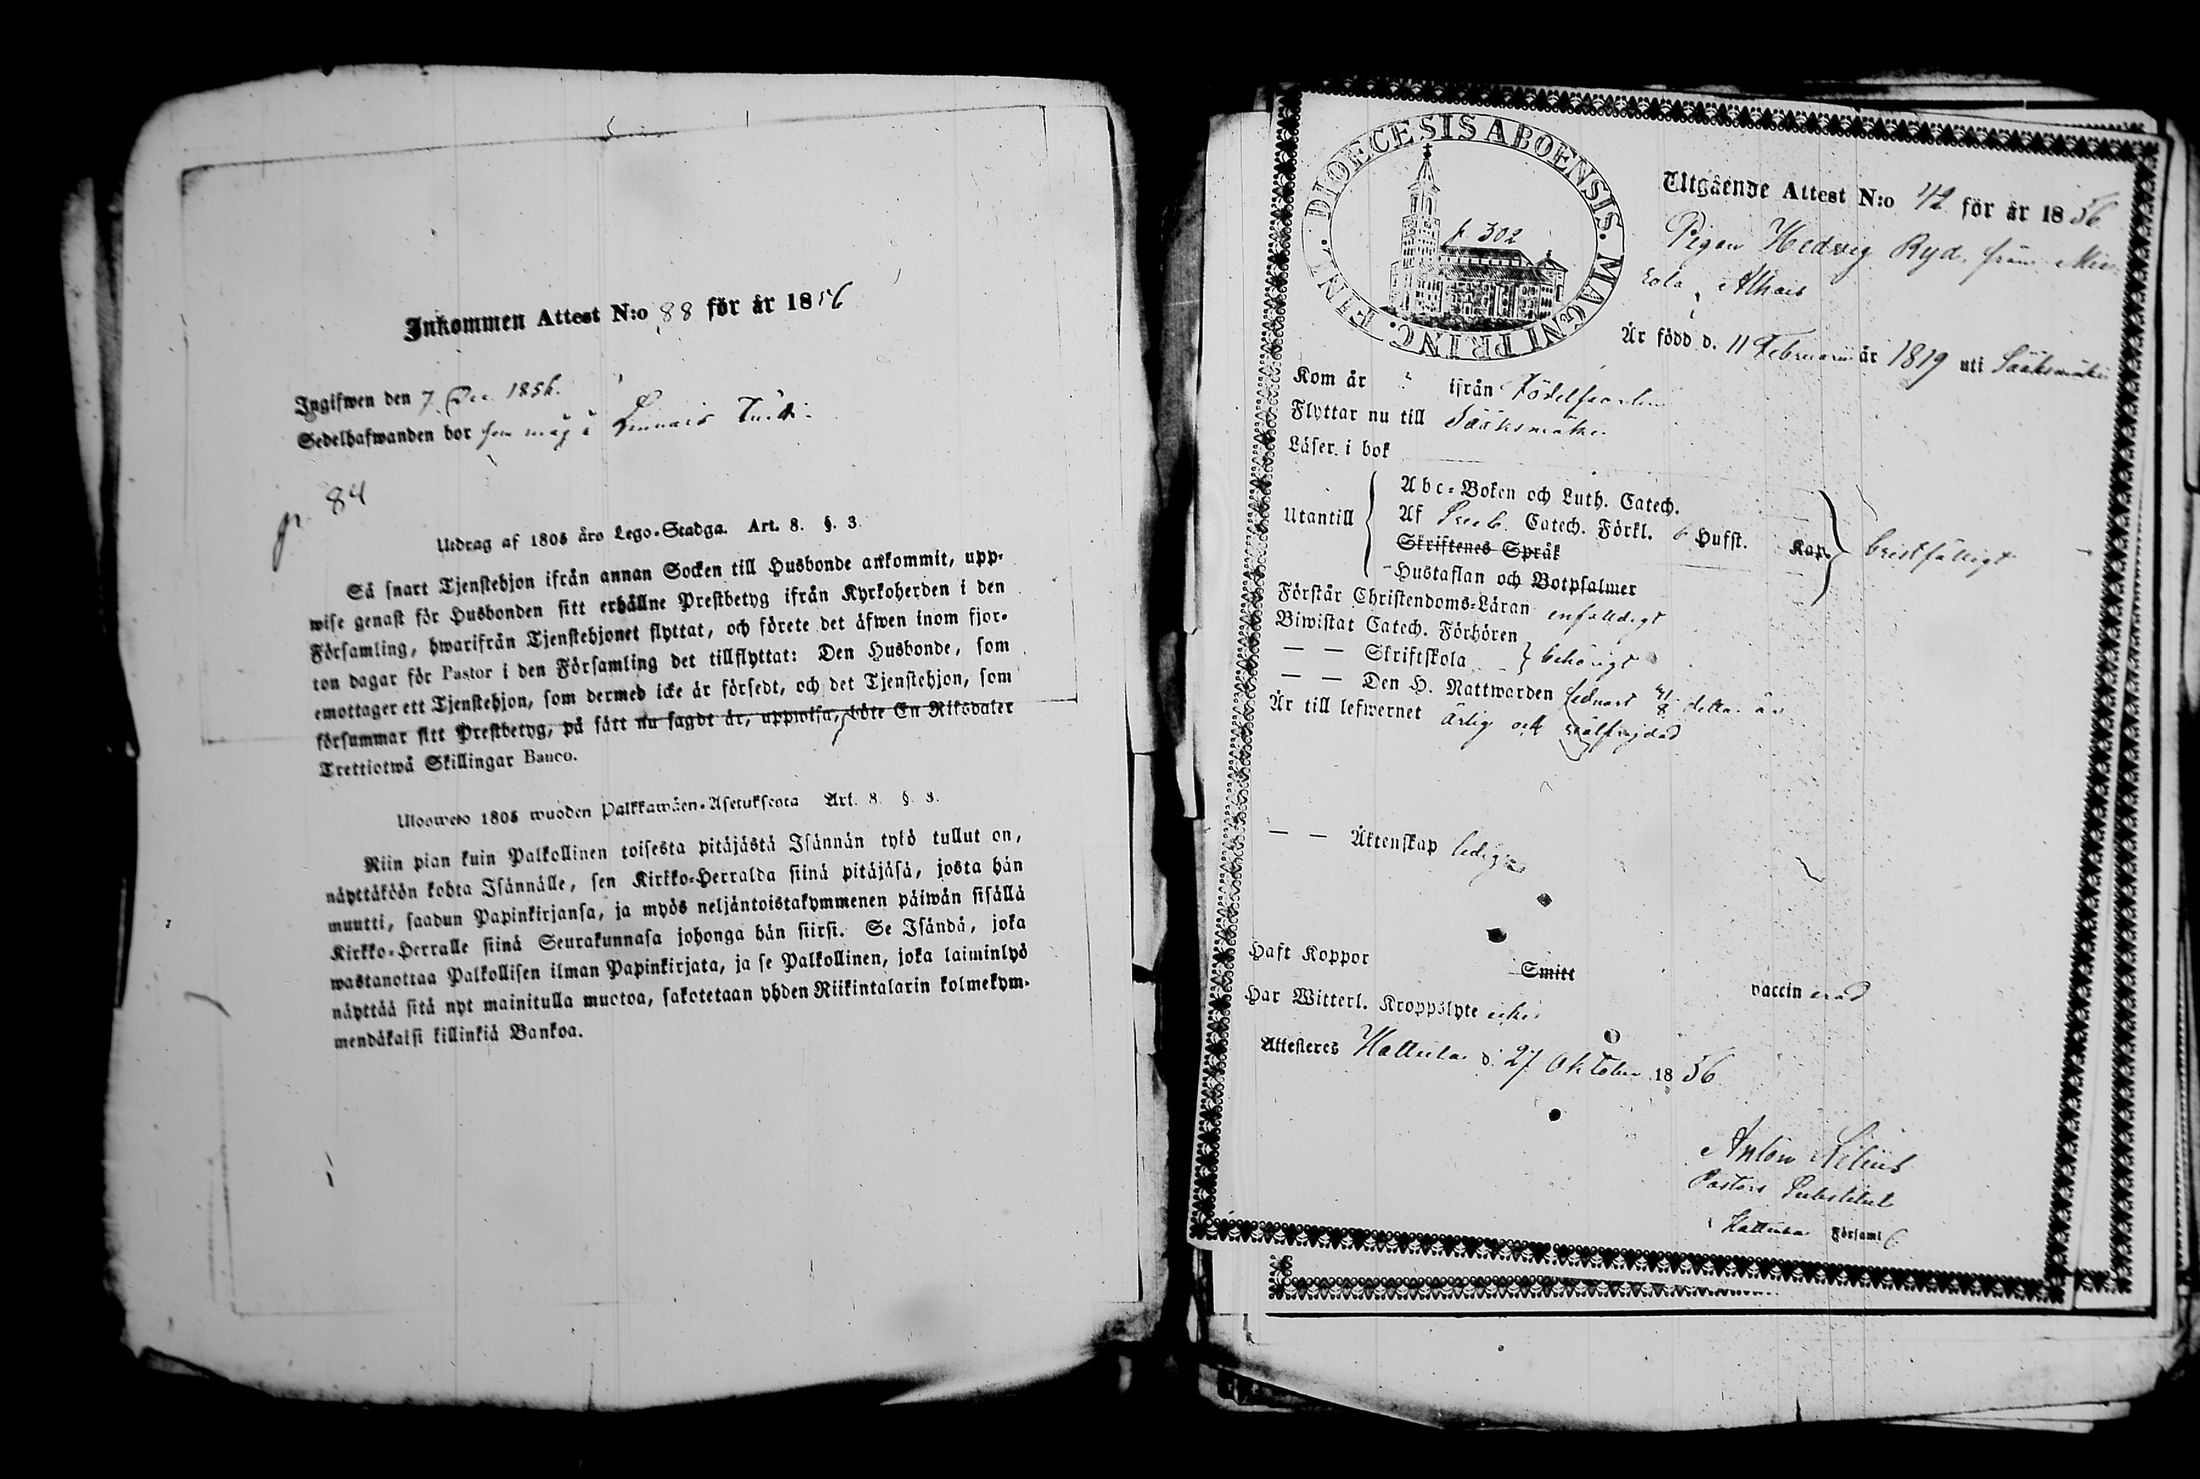 Inkommen Attest N:o 88 för år 1856
Ingifwen den 7 Dec. 1856.
Sedelhafwanden bor som måg å
p. 84
Utdrag af 1805 års Lego-Stadga. Art. 8. §. 3.
Så snart Tjenstehjon ifrån annan Socken till Husbonde ankommit, upp-
wise genast för Husbonden sitt erhållne Prestbetyg ifrån Kyrkoherden i den
Församling, hwarifrån Tjenstehjonet flyttat, och förete det äfwen inom fjor-
ton dagar för Pastor i den Församling det tillflyttat: Den Husbonde, som
emottager ett Tjenstehjon, som dermed icke är försedt, och det Tjenstehjon, som
försummar sitt Prestbetyg, på sätt nu sagdt är, uppwisa, böte En Riksdaler
Trettiotwå Skillingar Banco.
Ulosweto 1805 wuoden Palkkawäen-Asetuksesta Art. 8. §. 3.
Niin pian kuin Palkollinen toisesta pitäjästä Isännän tykö tullut on,
näyttäköön kohta Isännälle, sen Kirkko-Herralda siinä pitäjäsä, josta hän
muutti, saadun Papinkirjansa, ja myös neljäntoistakymmenen päiwän sisällä
Kirkko-Herralle siinä Seurakunnasa johonga hän siirsi. Se Isändä, joka
wastanottaa Palkollisen ilman Papinkirjata, ja se Palkollinen, joka laiminlyö
näyttää sitä nyt mainitulla muotoa, sakotetaan yhden Riikintalarin kolmekym-
mendäkaksi killinkiä Bankoa.
DIOECESIS ABOENSIS. MAGNI PRINC. FINL.
p. 302
Utgående Attest N:o 42 för år 1856
Pigan Hedvig Ryd, från Mie-
rola Alhais
Är född d. 11 Februarii år 1819 uti Sääksmäki
Kom år " ifrån Födelseorten
Flyttar nu till Sääksmäki
Läser i bok
Utantill
Abc-Boken och Luth. Catech.
Af Sveb. Catech. Förkl. 6 Hufst. Kap.
Skriftenes Språk
Hustaflan och Botpsalmer
bristfälligt
Förstår Christendoms-Läran enfaldigt
Biwistat Catech. Förhören
— — Skriftskola behörigt
— — Den H. Nattwarden senast detta år
Är till lefwernet ärlig och wälfrejdad
— — Äktenskap ledig
Haft Koppor Smitt vaccinerad
Har Witterl. Kroppslyte icke
Attesteres Hattula d. 27 Oktober 1856
Anton
Pastors Substitut
i Hattula Församl.